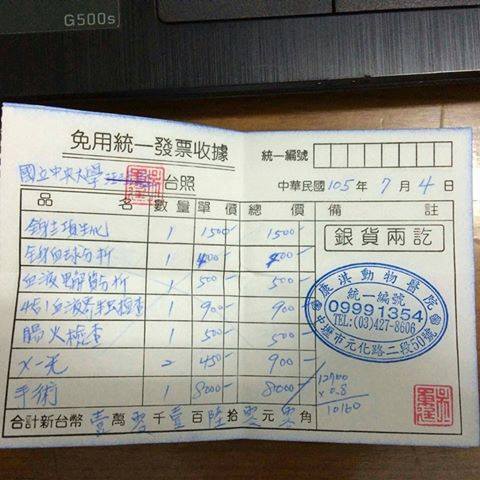 G500s
免用統一發票收據
統一編號
國立中央大學 台照
中華民國105年7月4日
品名 數量 單價 總價 備註
項生化 1 1500- 1500-
血球分析 1 400- 400-
血液電解質分析 1 500- 500-
4合1血液寄生蟲檢查 1 900- 900-
腸炎檢查 1 500- 500-
X-光 2 450- 900-
手術 1 8000- 8000-
合計新台幣壹萬零千壹百陸拾零元零角
銀貨兩訖
動物醫院
統一編號
09991354
TEL:(03)427-8606
中壢市元化路二段50號
12700
x 0.8
10160